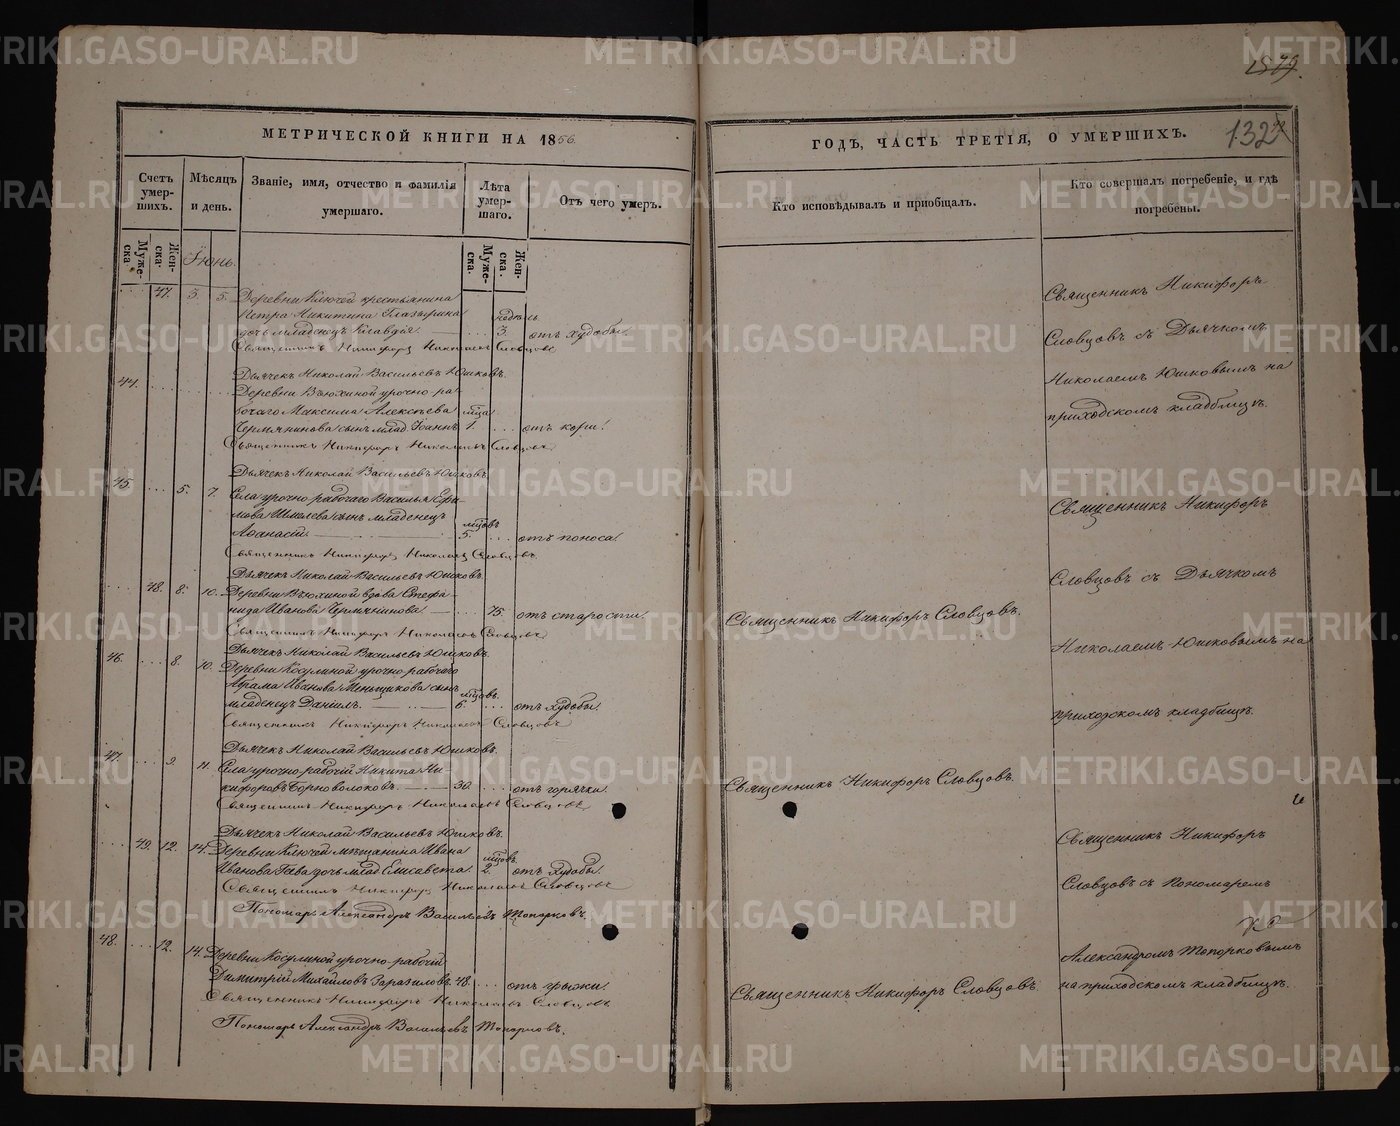 METRIKI.GASO-URAL.RU
1579.
132
МЕТРИЧЕСКОЙ КНИГИ НА 1856.
ГОДЪ, ЧАСТЬ ТРЕТІЯ, О УМЕРШИХЪ.
Счетъ умер-шихъ.
Муже-ска.
Жен-ска.
Мѣсяцъ и день.
Званіе, имя, отчество и фамилія умершаго.
Лѣта умер-шаго.
Муже-ска.
Жен-ска.
Отъ чего умеръ.
Кто исповѣдывалъ и приобщалъ.
Кто совершалъ погребеніе, и гдѣ погребены.
Іюнь.
47. 3. 5. Деревни Ключей крестьянина
Петра Никитина недѣль
дочь младенецъ Клавдія. 3. отъ худобы.
Священникъ Никифоръ Николаевъ Словцовъ
Дьячекъ Николай Васильевъ Юшковъ.
44. Деревни Вьюхиной урочно-ра-
бочаго Максима Алексѣева мѣсяца
Чермянинова сынъ млад. Іоаннъ 1. отъ кори.
Священникъ Никифоръ Николаевъ Словцовъ
Дьячекъ Николай Васильевъ Юшковъ.
45. 5. 7. Села урочно-рабочаго Василья Ефи-
мова Шмелева сынъ младенецъ
Афанасій. 5. отъ поноса.
Священникъ Никифоръ Николаевъ Словцовъ
Дьячекъ Николай Васильевъ Юшковъ.
48. 8. 10. Деревни Вьюхиной вдова Стефа-
нида Иванова Чермянинова 75. отъ старости.
Священникъ Никифоръ Николаевъ Словцовъ
Дьячекъ Николай Васильевъ Юшковъ.
46. 8. 10. Деревни Косулиной урочно-рабочаго
Абрама Иванова Меньщикова сынъ
младенецъ Даніилъ. 6. отъ худобы.
Священникъ Никифоръ Николаевъ Словцовъ
Дьячекъ Николай Васильевъ Юшковъ.
47. 9. 11. Села урочно-рабочій Никита Ни-
кифоровъ Черноволоковъ 30. отъ горячки.
Священникъ Никифоръ Николаевъ Словцовъ
Дьячекъ Николай Васильевъ Юшковъ.
49. 12. 14. Деревни Ключей мѣщанина Ивана
Иванова дочь млад. Елисавета 2. отъ худобы.
Священникъ Никифоръ Николаевъ Словцовъ
Пономарь Александръ Васильевъ Топорковъ.
48. 12. 14. Деревни Косулиной урочно-рабочій
Димитрій Михайловъ 48. отъ грыжи.
Священникъ Никифоръ Николаевъ Словцовъ
Пономарь Александръ Васильевъ Топорковъ.
Священникъ Никифоръ Словцовъ.
Священникъ Никифоръ Словцовъ.
Священникъ Никифоръ Словцовъ
Священникъ Никифоръ
Словцовъ съ Дьячкомъ
Николаемъ Юшковымъ на
приходскомъ кладбищѣ.
Священникъ Никифоръ
Словцовъ съ Дьячкомъ
Николаемъ Юшковымъ на
приходскомъ кладбищѣ.
Священникъ Никифоръ
Словцовъ съ Пономаремъ
Александромъ Топорковымъ
на приходскомъ кладбищѣ.